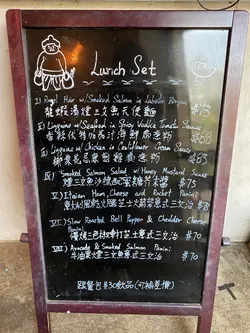 Lunch Set
I) Angel Hair w/Smoked Salmon in Lobster Bisque
龍蝦湯煙三文魚天使麵 $73
II) Linguine w/Seafood in Spicy Vodka Tomato Sauce
香辣伏特加茄汁海鮮扁意粉 $68
III) Linguine w/ Chicken in Cauliflower Cream Sauce
椰菜花忌廉雞扁意粉 $63
IV) Smoked Salmon Salad w/ Honey Mustard Sauce
煙三文魚沙律配蜜糖芥末醬 $75
V) Italian Ham Cheese and Panini
意大利火腿芝士意式三文治 $70
VI) Slow Roasted Bell Pepper & Cheddar Cheese Panini
慢烤三色椒車打芝士意式三文治 $70
VII) Avocado & Smoked Salmon Panini
牛油果煙三文魚意式三文治 $70
跟餐包 $30飲品 (可補差價)